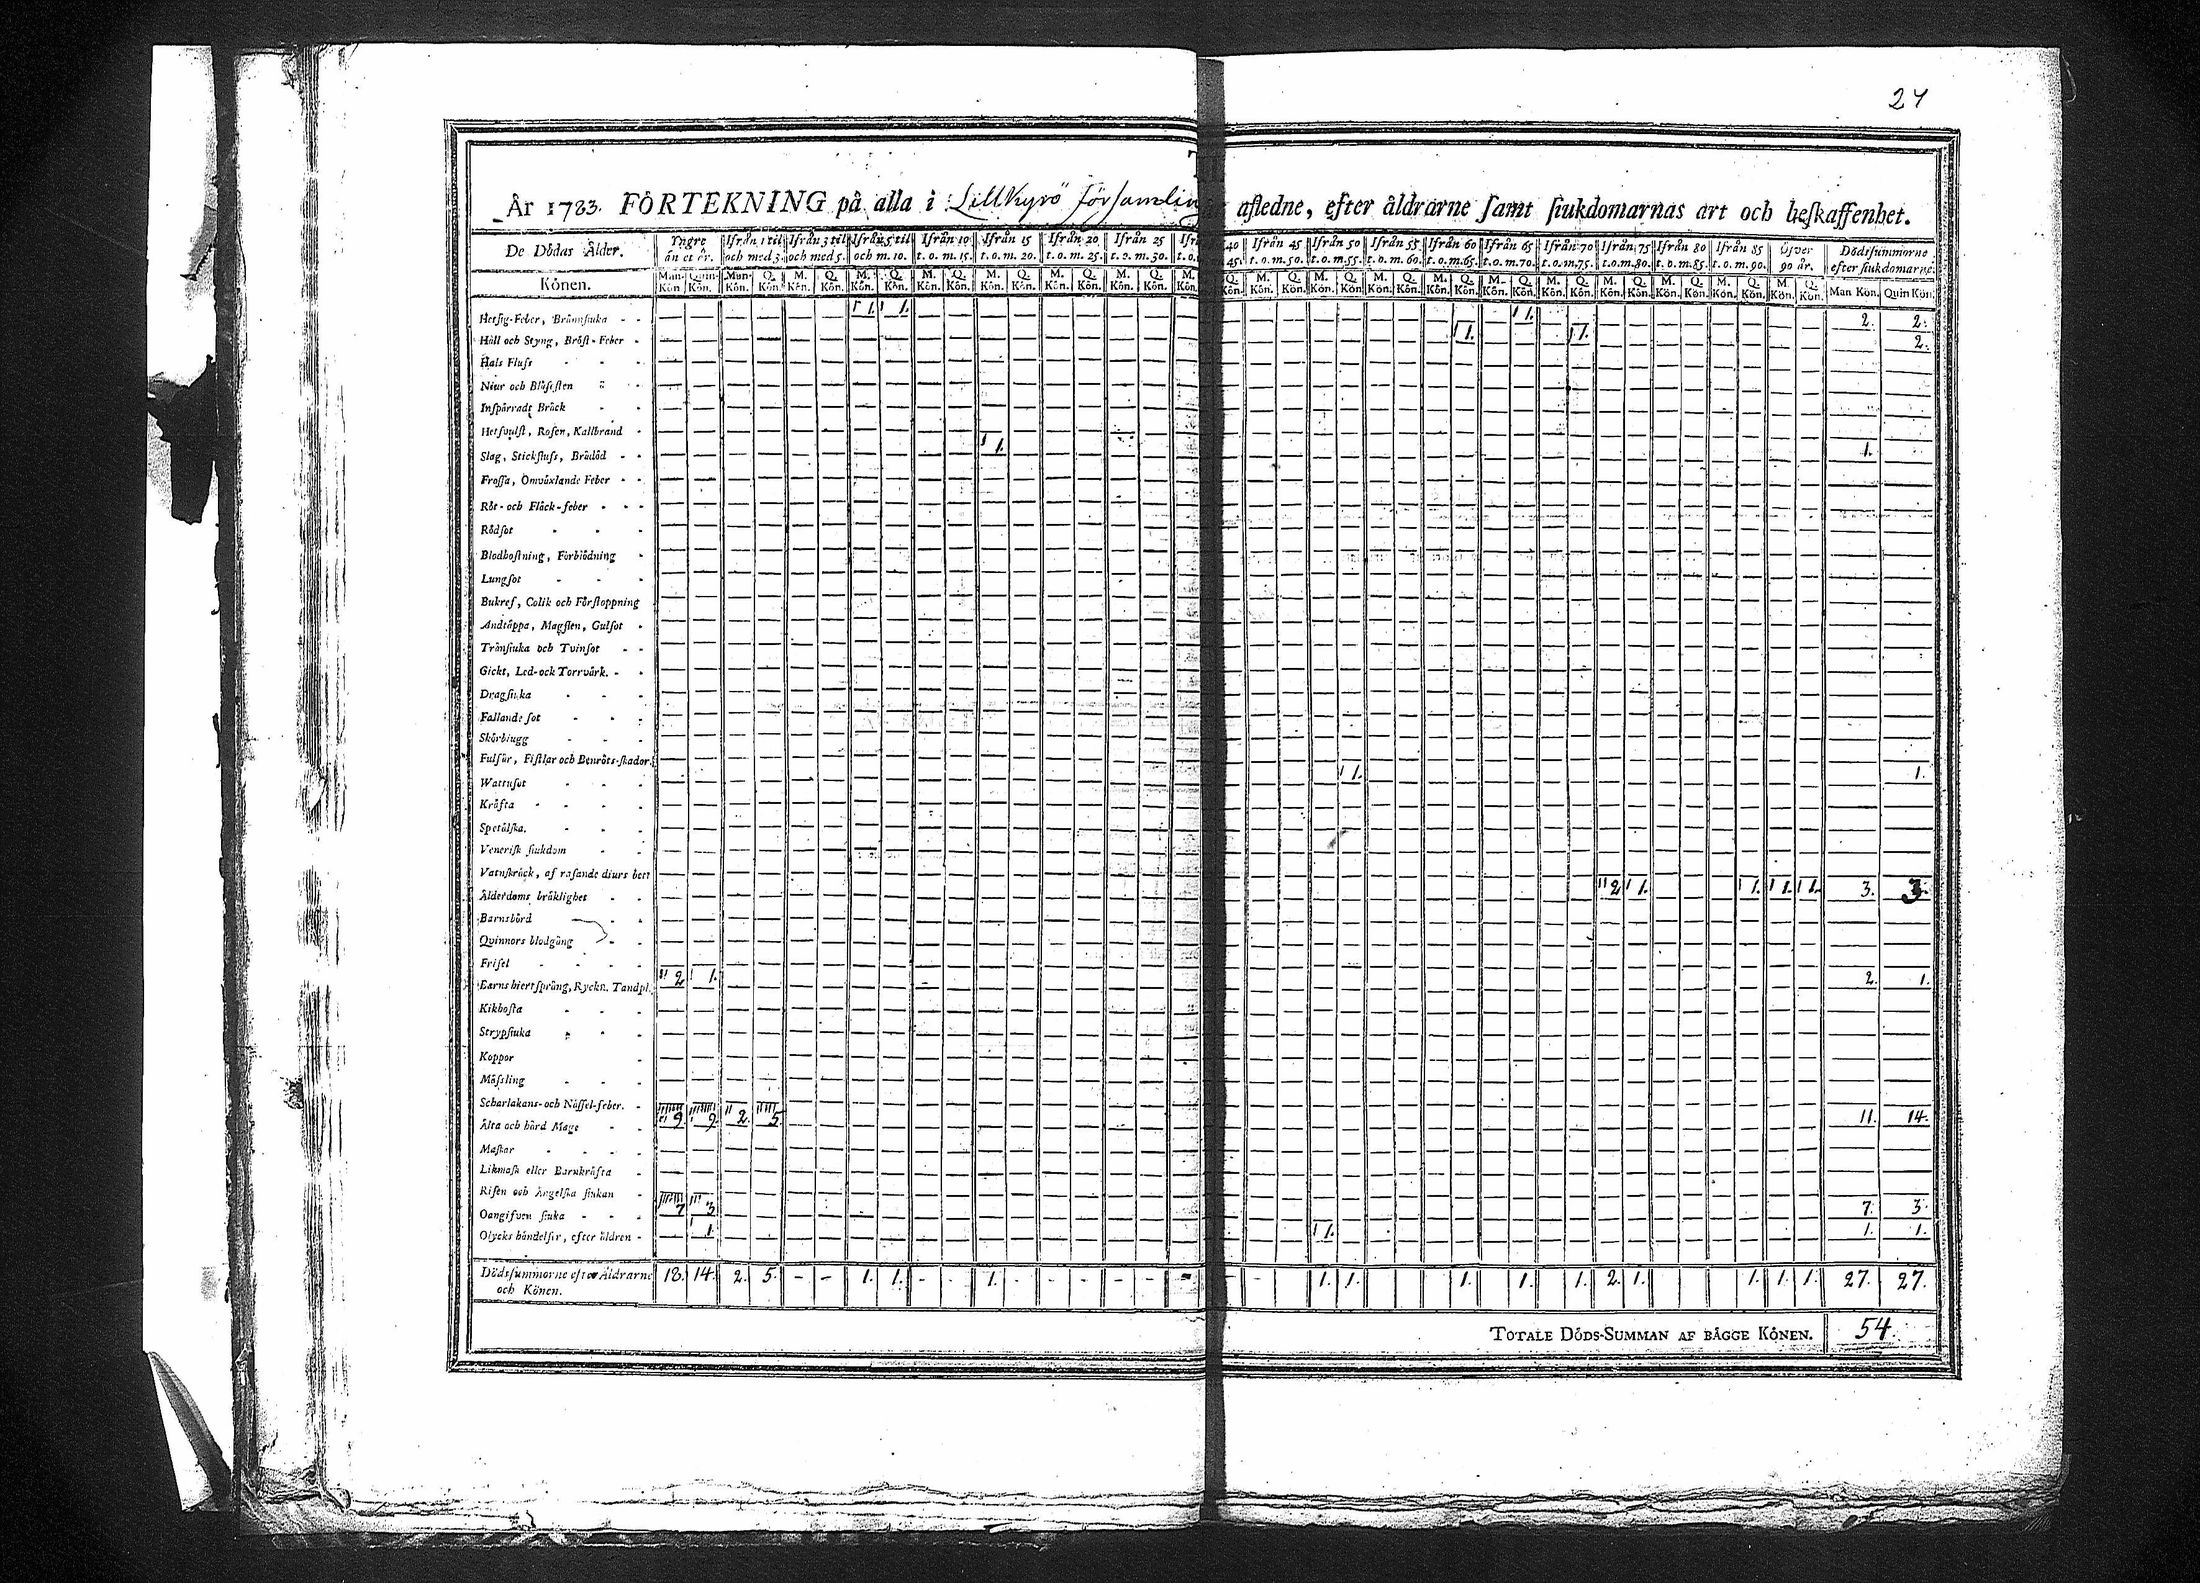 24
År 1783. FÖRTEKNING på alla i Lillkyrö församling afledne, efter åldrarne samt siukdomarnas art och beskaffenhet.
De Dödas Ålder. Yngre än et år. Ifrån 1 til och med 3. Ifrån 3 til och med 5. Ifrån 5 til och m. 10. Ifrån 10 t. o. m. 15. Ifrån 15 t. o. m. 20. Ifrån 20 t. o. m. 25. Ifrån 25 t. o. m. 30. 40 45. Ifrån 45 t. o. m. 50. Ifrån 50 t. o. m. 55. Ifrån 55 t. o. m. 60. Ifrån 60 t. o. m. 65. Ifrån 65 t. o. m. 70. Ifrån 70 t. o. m. 75. Ifrån 75 t. o. m. 80. Ifrån 80 t. o. m. 85. Ifrån 85 t. o. m. 90. Öfver 90 år. Dödssummorne efter siukdomarne.
Könen. Man-Kön. Quin-Kön. Man-Kön. Q. Kön. M. Kön. Q. Kön. M. Kön. Q. Kön. M. Kön. Q. Kön. M. Kön. Q. Kön. M. Kön. Q. Kön. M. Kön. Q. Kön. M. Q. Kön. M. Kön. Q. Kön. M. Kön. Q. Kön. M. Kön. Q. Kön. M. Kön. Q. Kön. M. Kön. Q. Kön. M. Kön. Q. Kön. M. Kön. Q. Kön. M. Kön. Q. Kön. M. Kön. Q. Kön. M. Kön. Q. Kön. Man Kön. Quin Kön.
Hetsig-Feber, Brännsiuka 1. 1. 1. 2. 2.
Håll och Styng, Bröst-Feber 1. 1. 2.
Hals Fluss
Niur och Blåssten
Inspärradt Bråck
Hetsvulst, Rosen, Kallbrand
Slag, Stickfluss, Brådöd 1. 1.
Frossa, Omväxlande Feber
Röt- och Fläck-feber
Rödsot
Blodhostning, Förblödning
Lungsot
Bukref, Colik och Förstoppning
Andtäppa, Magsten, Gulsot
Trånsiuka och Tvinsot
Gickt, Led- och Torrvärk.
Dragsiuka
Fallande sot
Skörbiugg
Fulsår, Fistlar och Benröts-skador.
Wattusot 1. 1.
Kräfta
Spetälska.
Venerisk siukdom
Vatnskräck, af rasande diurs bett
Ålderdoms bräklighet 2 1. 1. 1. 1. 3. 3.
Barnsbörd
Qvinnors blodgång
Frisel
Barns hiertsprång, Ryckn. Tandpl. 2 1. 2. 1.
Kikhosta
Strypsiuka
Koppor
Mässling
Scharlakans- och Nässel-feber.
Älta och hård Mage 9 9 2. 5 11. 14.
Maskar
Likmask eller Barnkräfta
Risen och Ängelska siukan
Oangifven siuka 7 3 7. 3.
Olycks händelser, efter åldren 1. 1. 1. 1.
Dödssummorne efter Åldrarne och Könen. 18. 14. 2. 5. - - 1. 1. - - 1. - - - - - - - 1. 1. 1. 1. 1. 2. 1. 1. 1. 1. 27. 27.
TOTALE DÖDS-SUMMAN AF BÄGGE KÖNEN. 54.